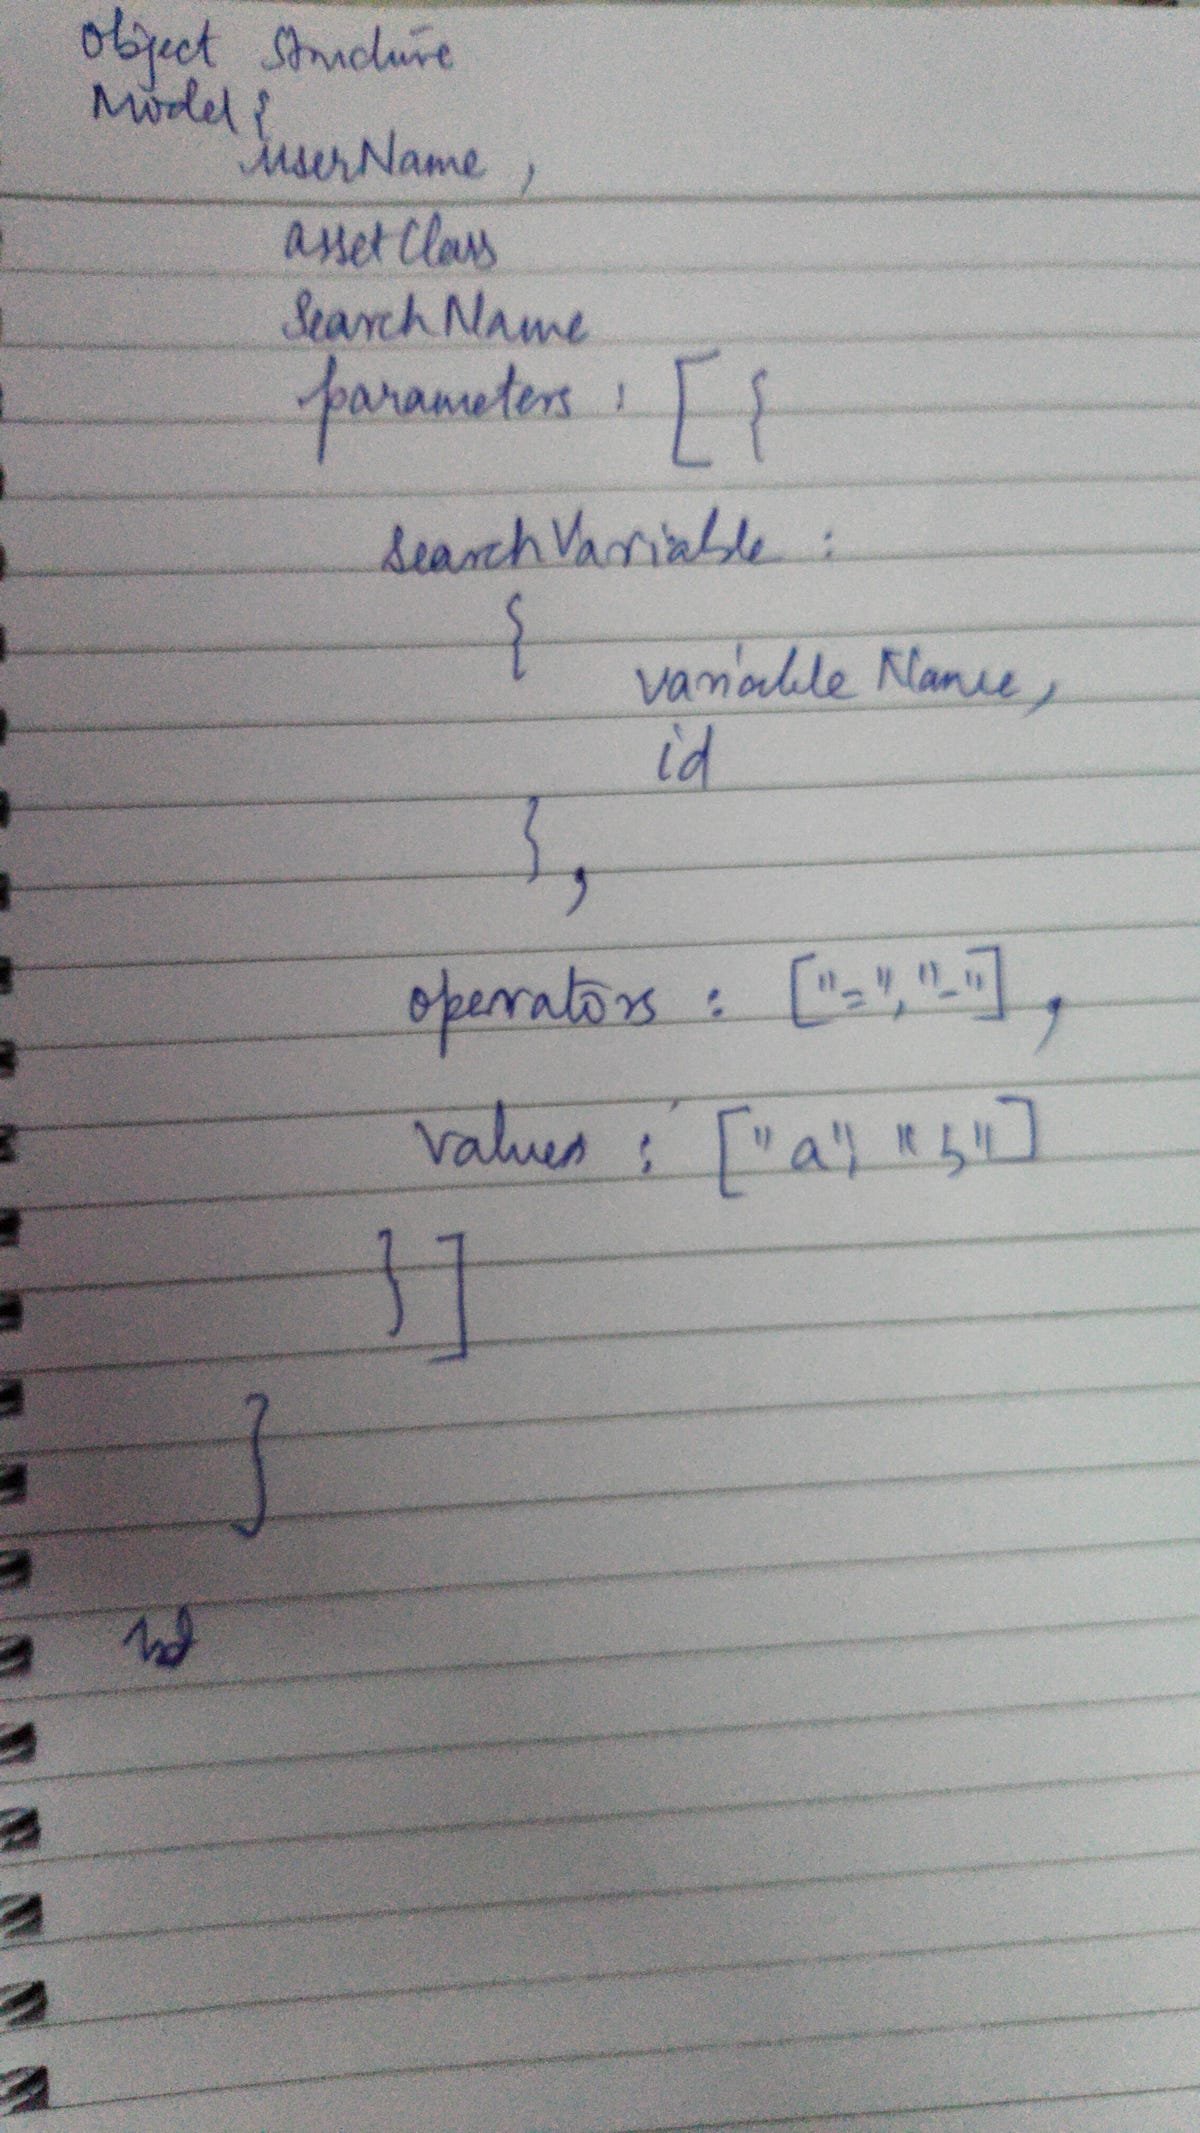 Object Structure
Model {
userName ,
assetClass
SearchName
parameters : [ {
searchVariable :
{
variableName,
id
} ,
operators : ["=", "-"] ,
values : ["a", "b"]
} ]
}